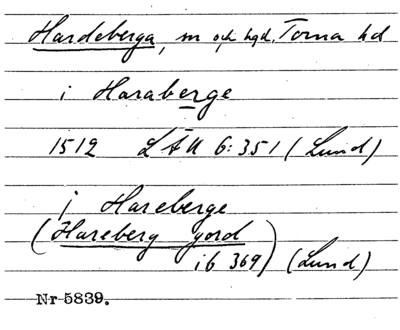 Hardeberga, m och hgd. Torna hd
i Haraberge
1512 LÄU 6:351 (Lund)
i Hareberge
(Hareberg gord
ib 369) (Lund)
Nr 5839.